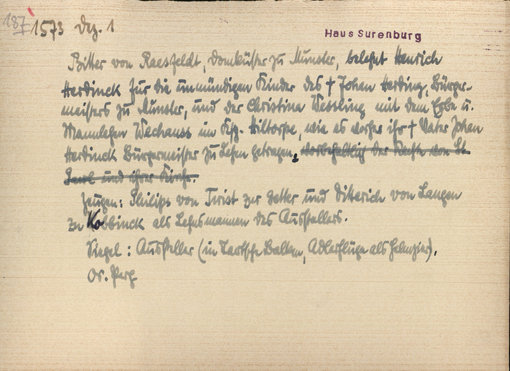 187
1573 Dez. 1
Haus Surenburg
Bitter von Raesfeldt, Domküster zu Münster, belehnt Henrich
Herdinck für die unmündigen Kinder des † Johan Herding, Bürger-
meisters zu Münster, und der Christina Wesling mit dem Erbe u.
Mannlehen Wechaus im Ksp. Hiltorpe, wie es vorher ihr † Vater Johan
Herdinck Bürgermeister zu Lehen getragen, vorbehaltlich der Rechte von St.
und ihrer Kirche.
Zeugen: Philips von Twist zur und Ditterich von Langen
zu Kobbinck als Lehnsmannen des Ausstellers.
Siegel: Aussteller (in Balken, Adlerflüge als Helmzier).
Or. Perg